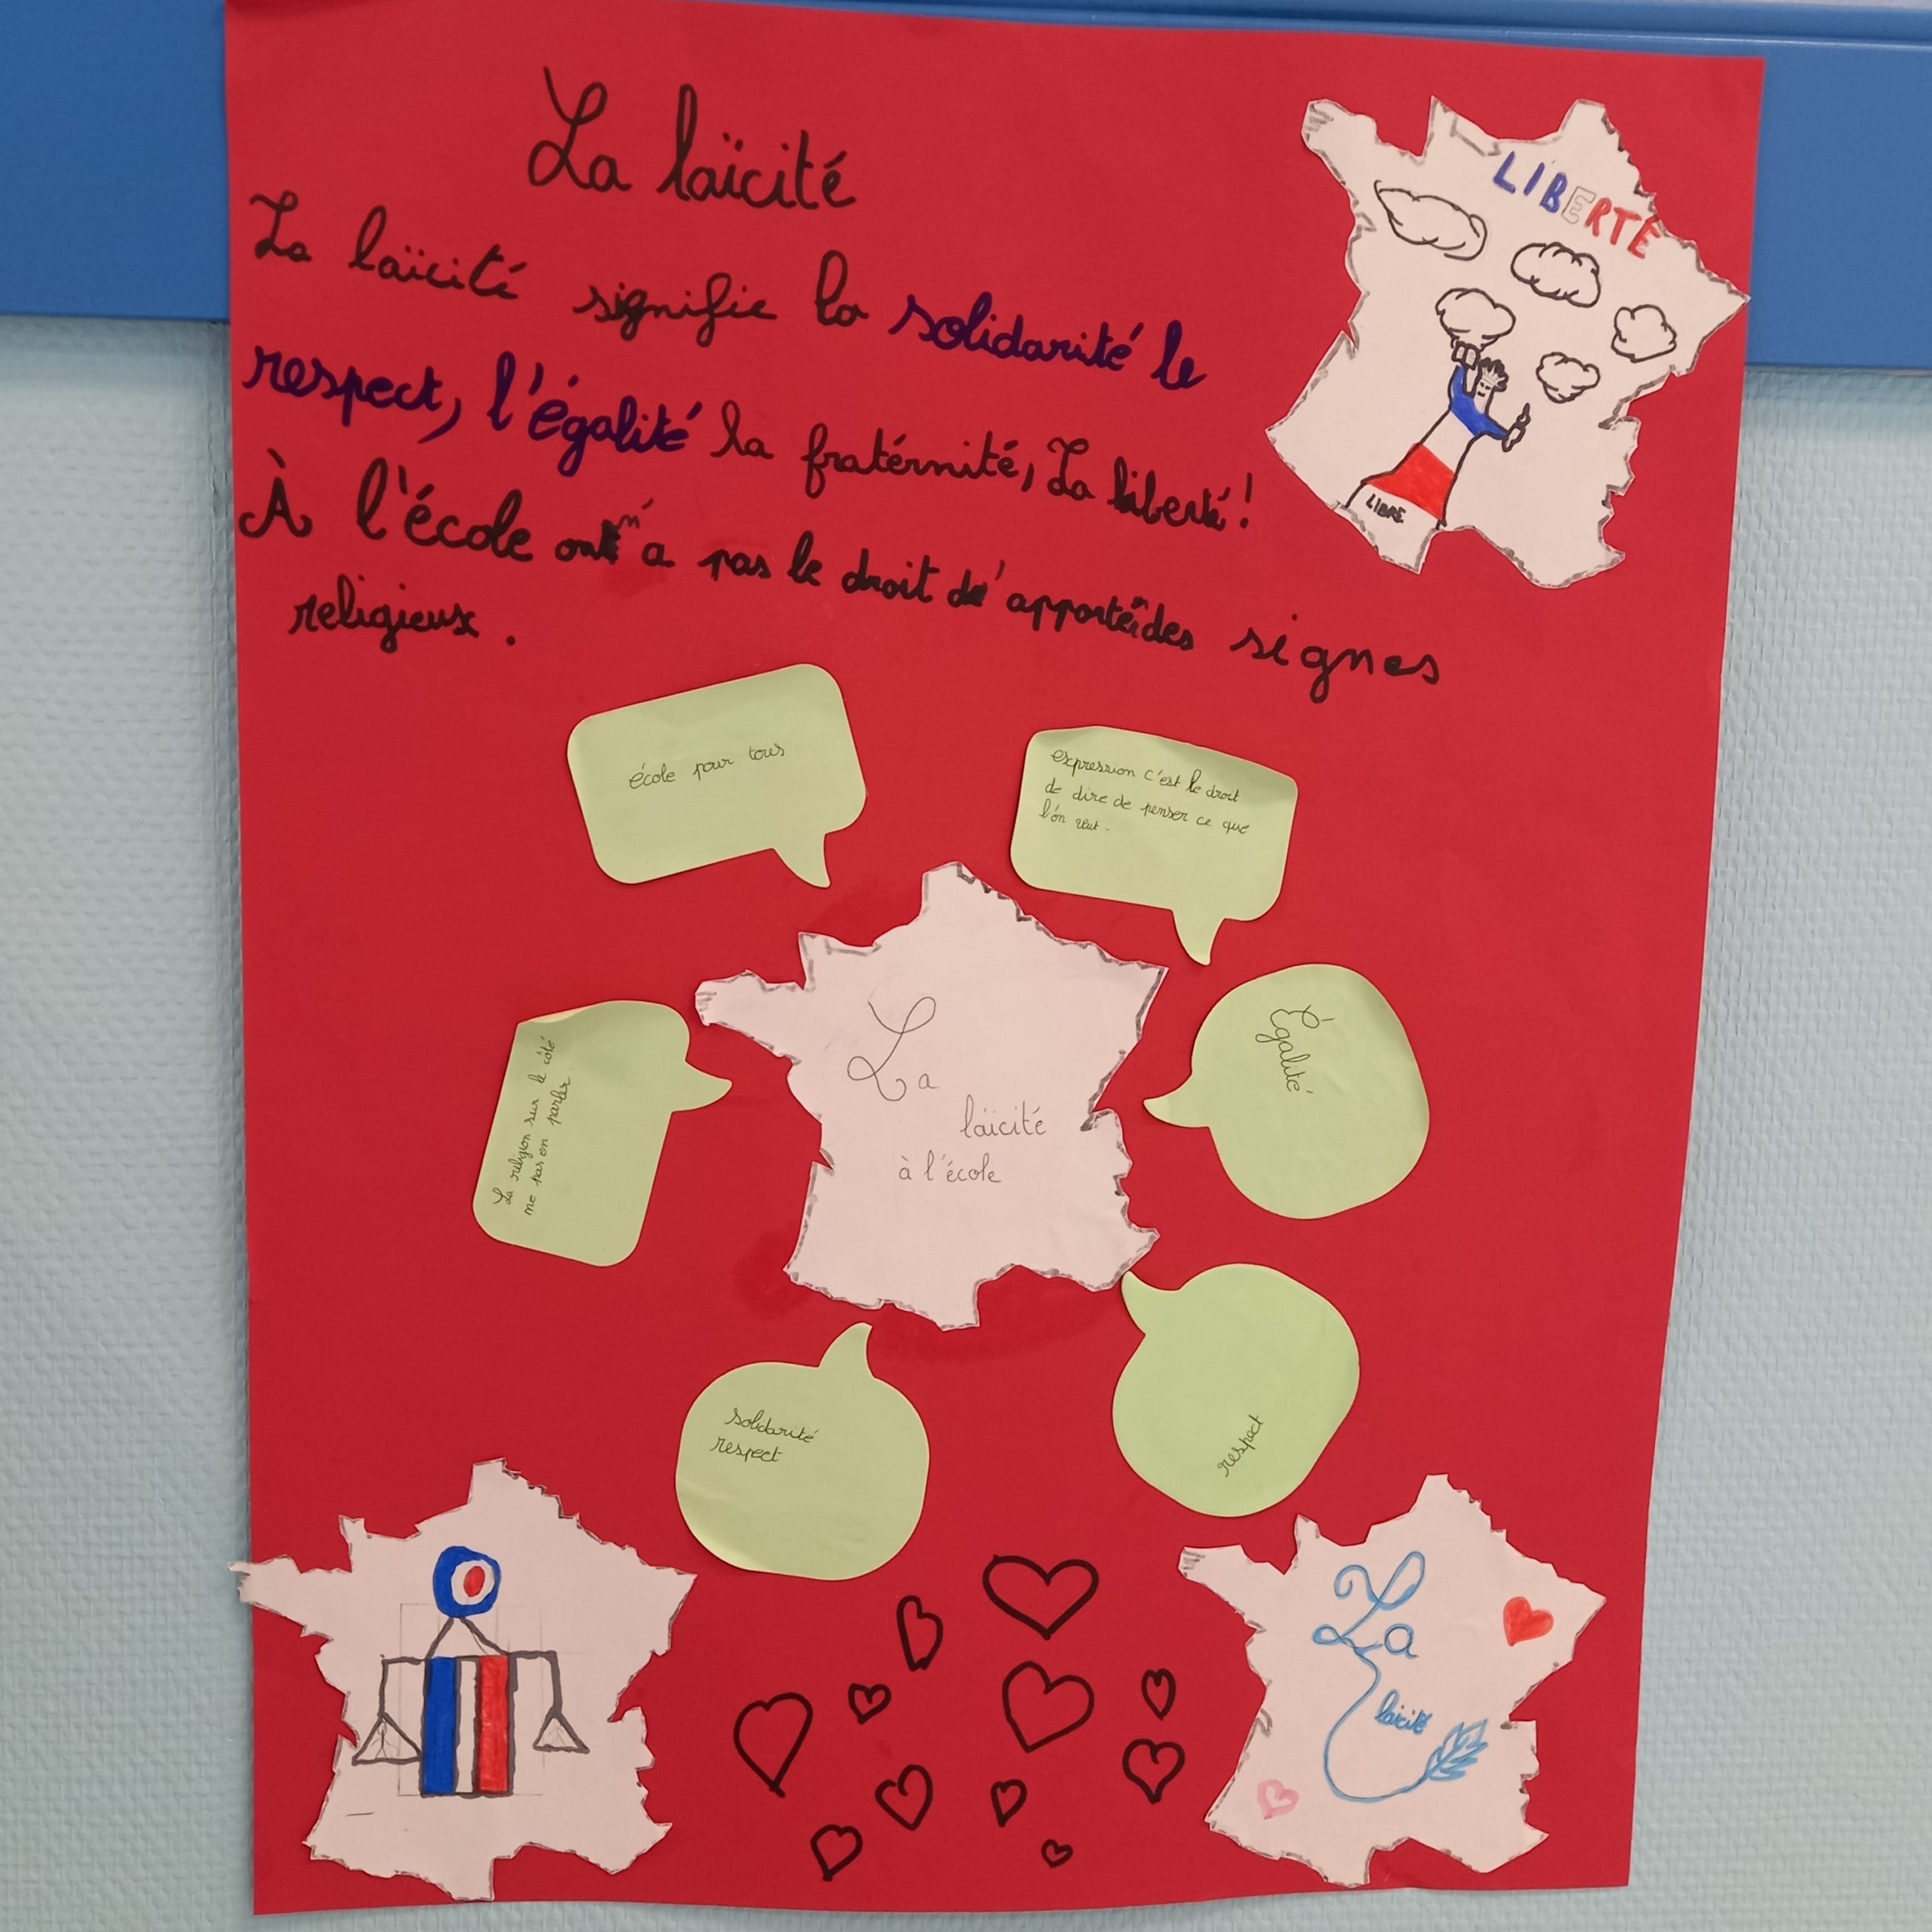 La laïcité
La laïcité signifie la solidarité le
respect, l'égalité la fratérnité, La liberté!
À l'école on n'a pas le droit d'apporter des signes
religieux.
LIBERTÉ
LIBRE
école pour tous
expression c'est le droit
de dire de penser ce que
l'on veut.
La religion sur le côté
ne pas en parler.
La
laïcité
à l'école
Égalité
solidarité
respect
respect
La
laïcité